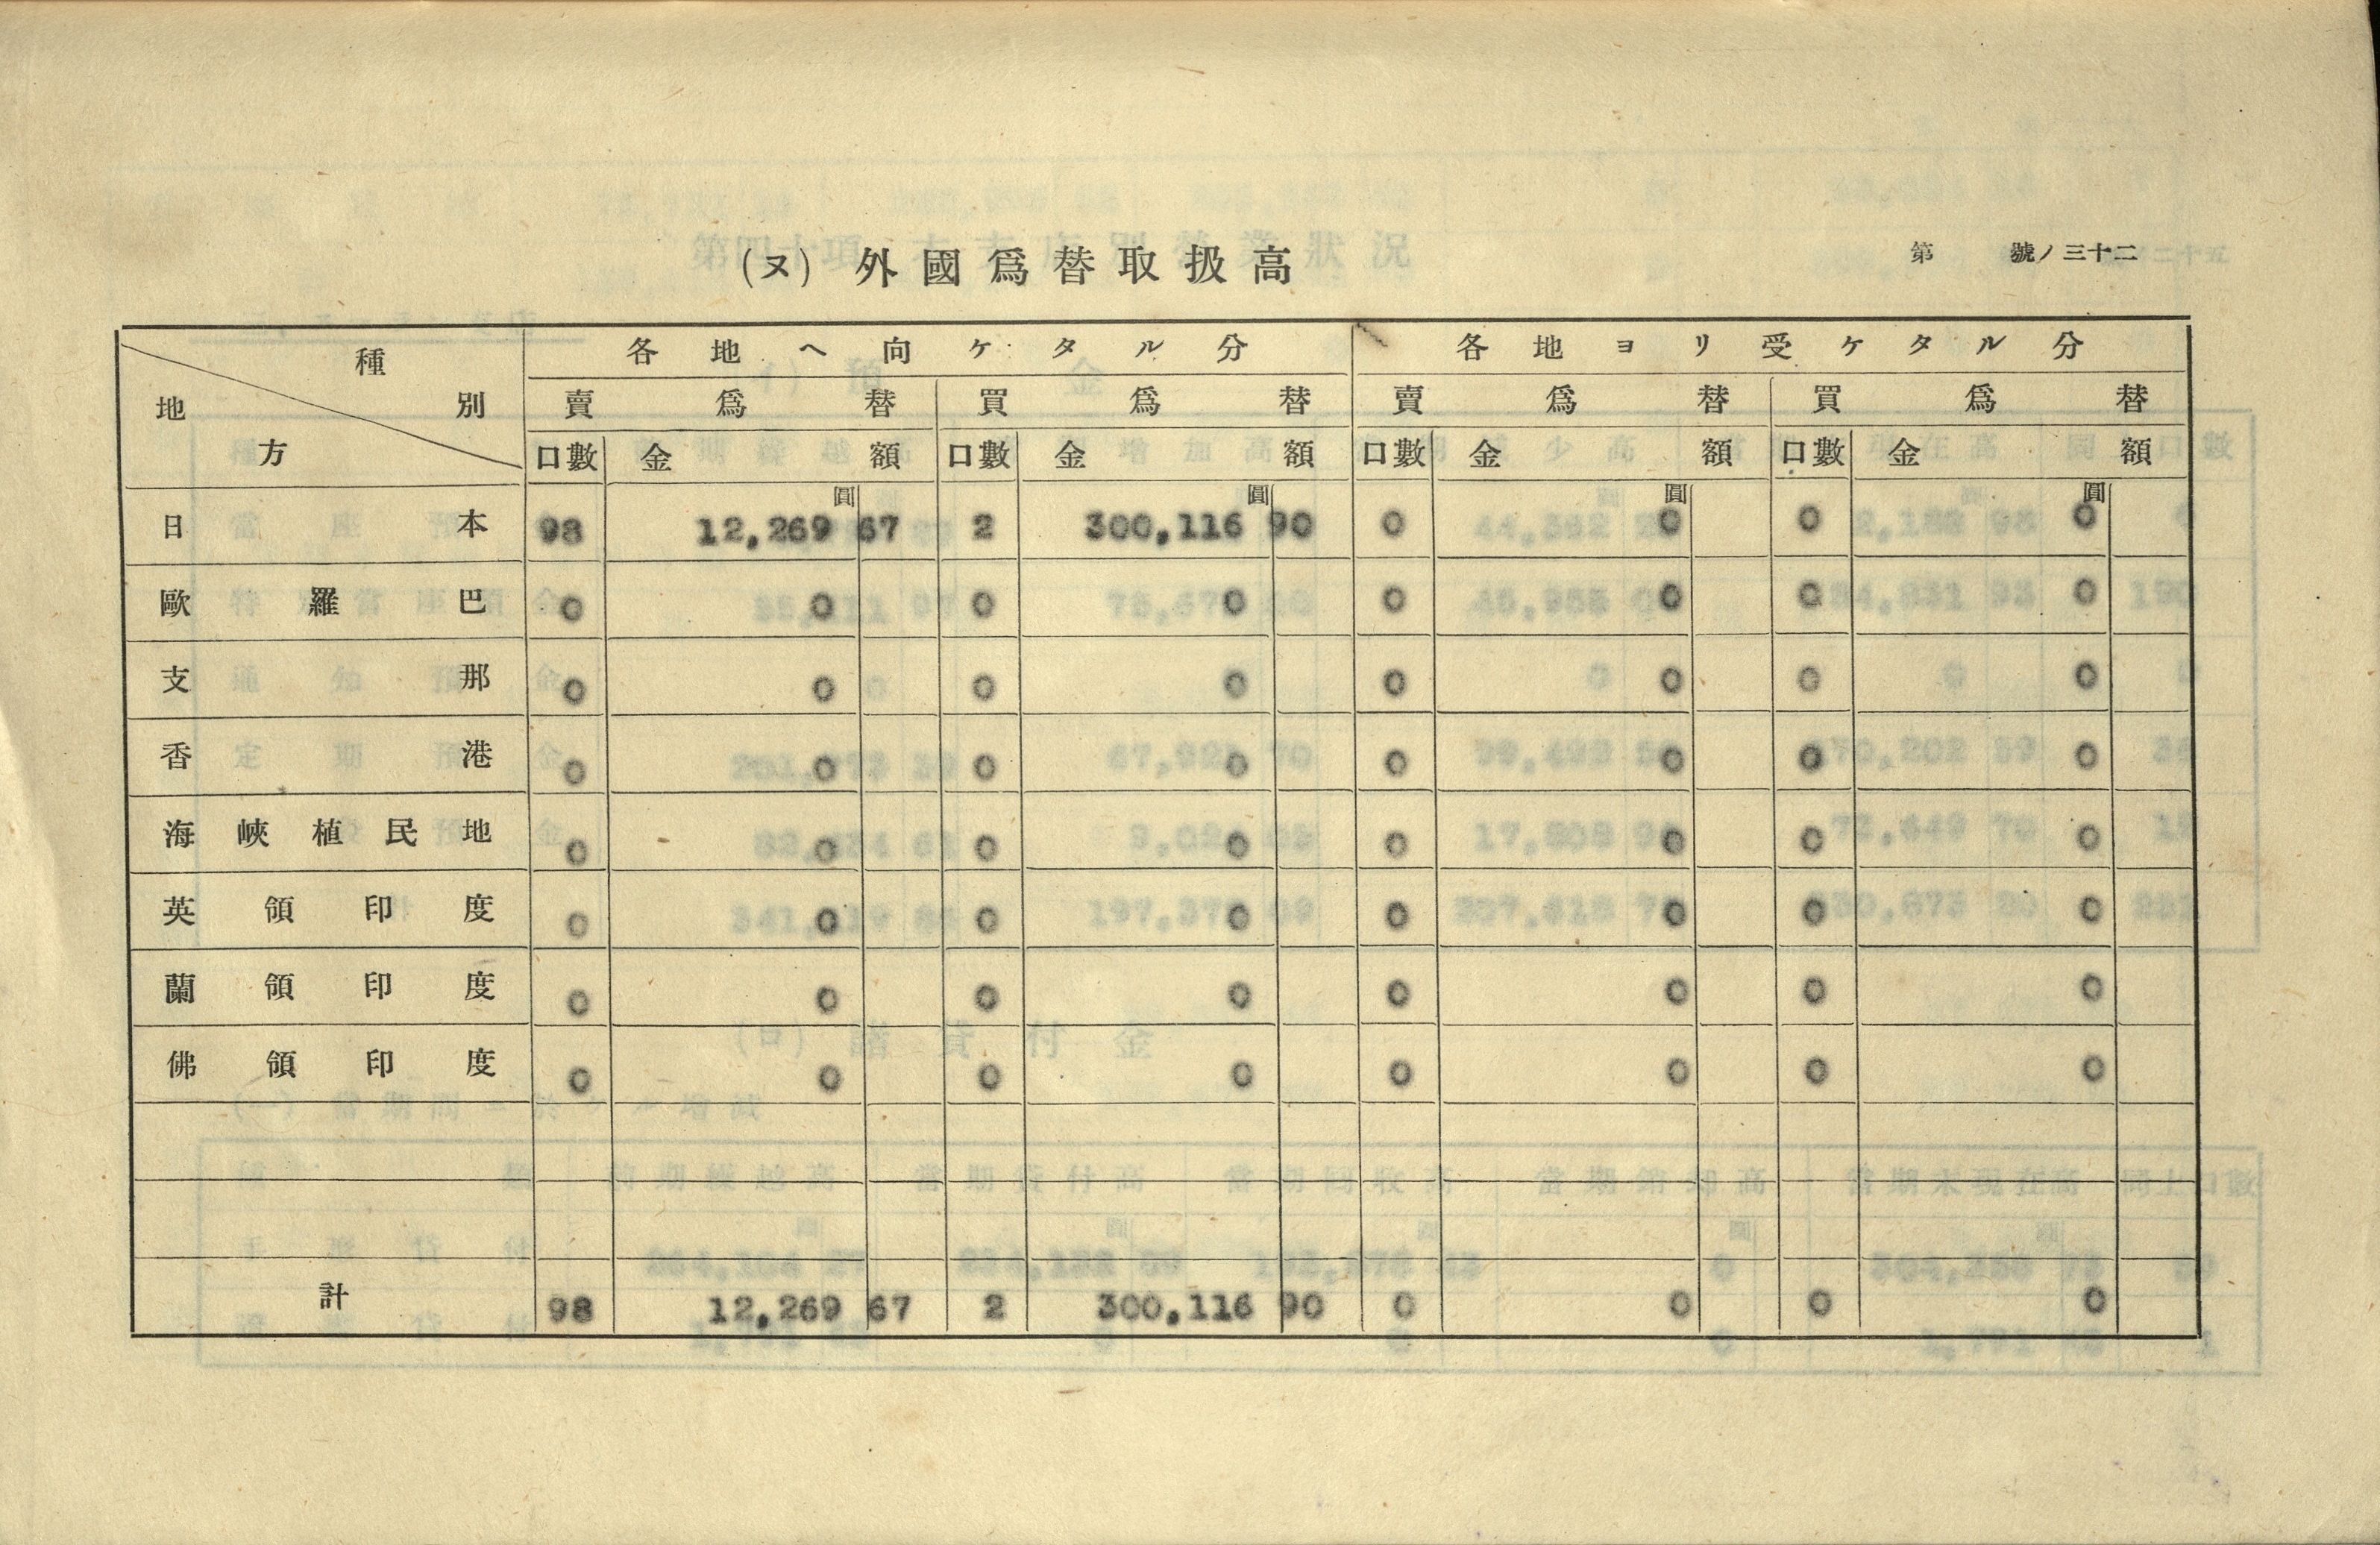 (ヌ) 外國爲替取扱高
第 號ノ三十二
種別 地方 各地ヘ向ケタル分 各地ヨリ受ケタル分
賣爲替 買爲替 賣爲替 買爲替
口數 金額 口數 金額 口數 金額 口數 金額
圓 圓 圓 圓
日本 98 12,269 67 2 300,116 90 0 0 0 0
歐羅巴 0 0 0 0 0 0 0 0
支那 0 0 0 0 0 0 0 0
香港 0 0 0 0 0 0 0 0
海峽植民地 0 0 0 0 0 0 0 0
英領印度 0 0 0 0 0 0 0 0
蘭領印度 0 0 0 0 0 0 0 0
佛領印度 0 0 0 0 0 0 0 0
計 98 12,269 67 2 300,116 90 0 0 0 0